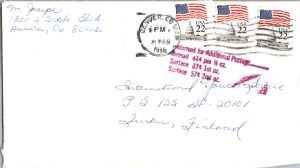 M. Joseph
Aurora, Co 80012
DENVER, CO
PM
1988
USA 22
USA 22
USA 22
Returned for Additional Postage
Airmail 44¢ per ½ oz.
Surface 37¢ 1st oz.
Surface 57¢ 2nd oz.
International Youth Service
PB 125 SF-20101
Turku, Finland